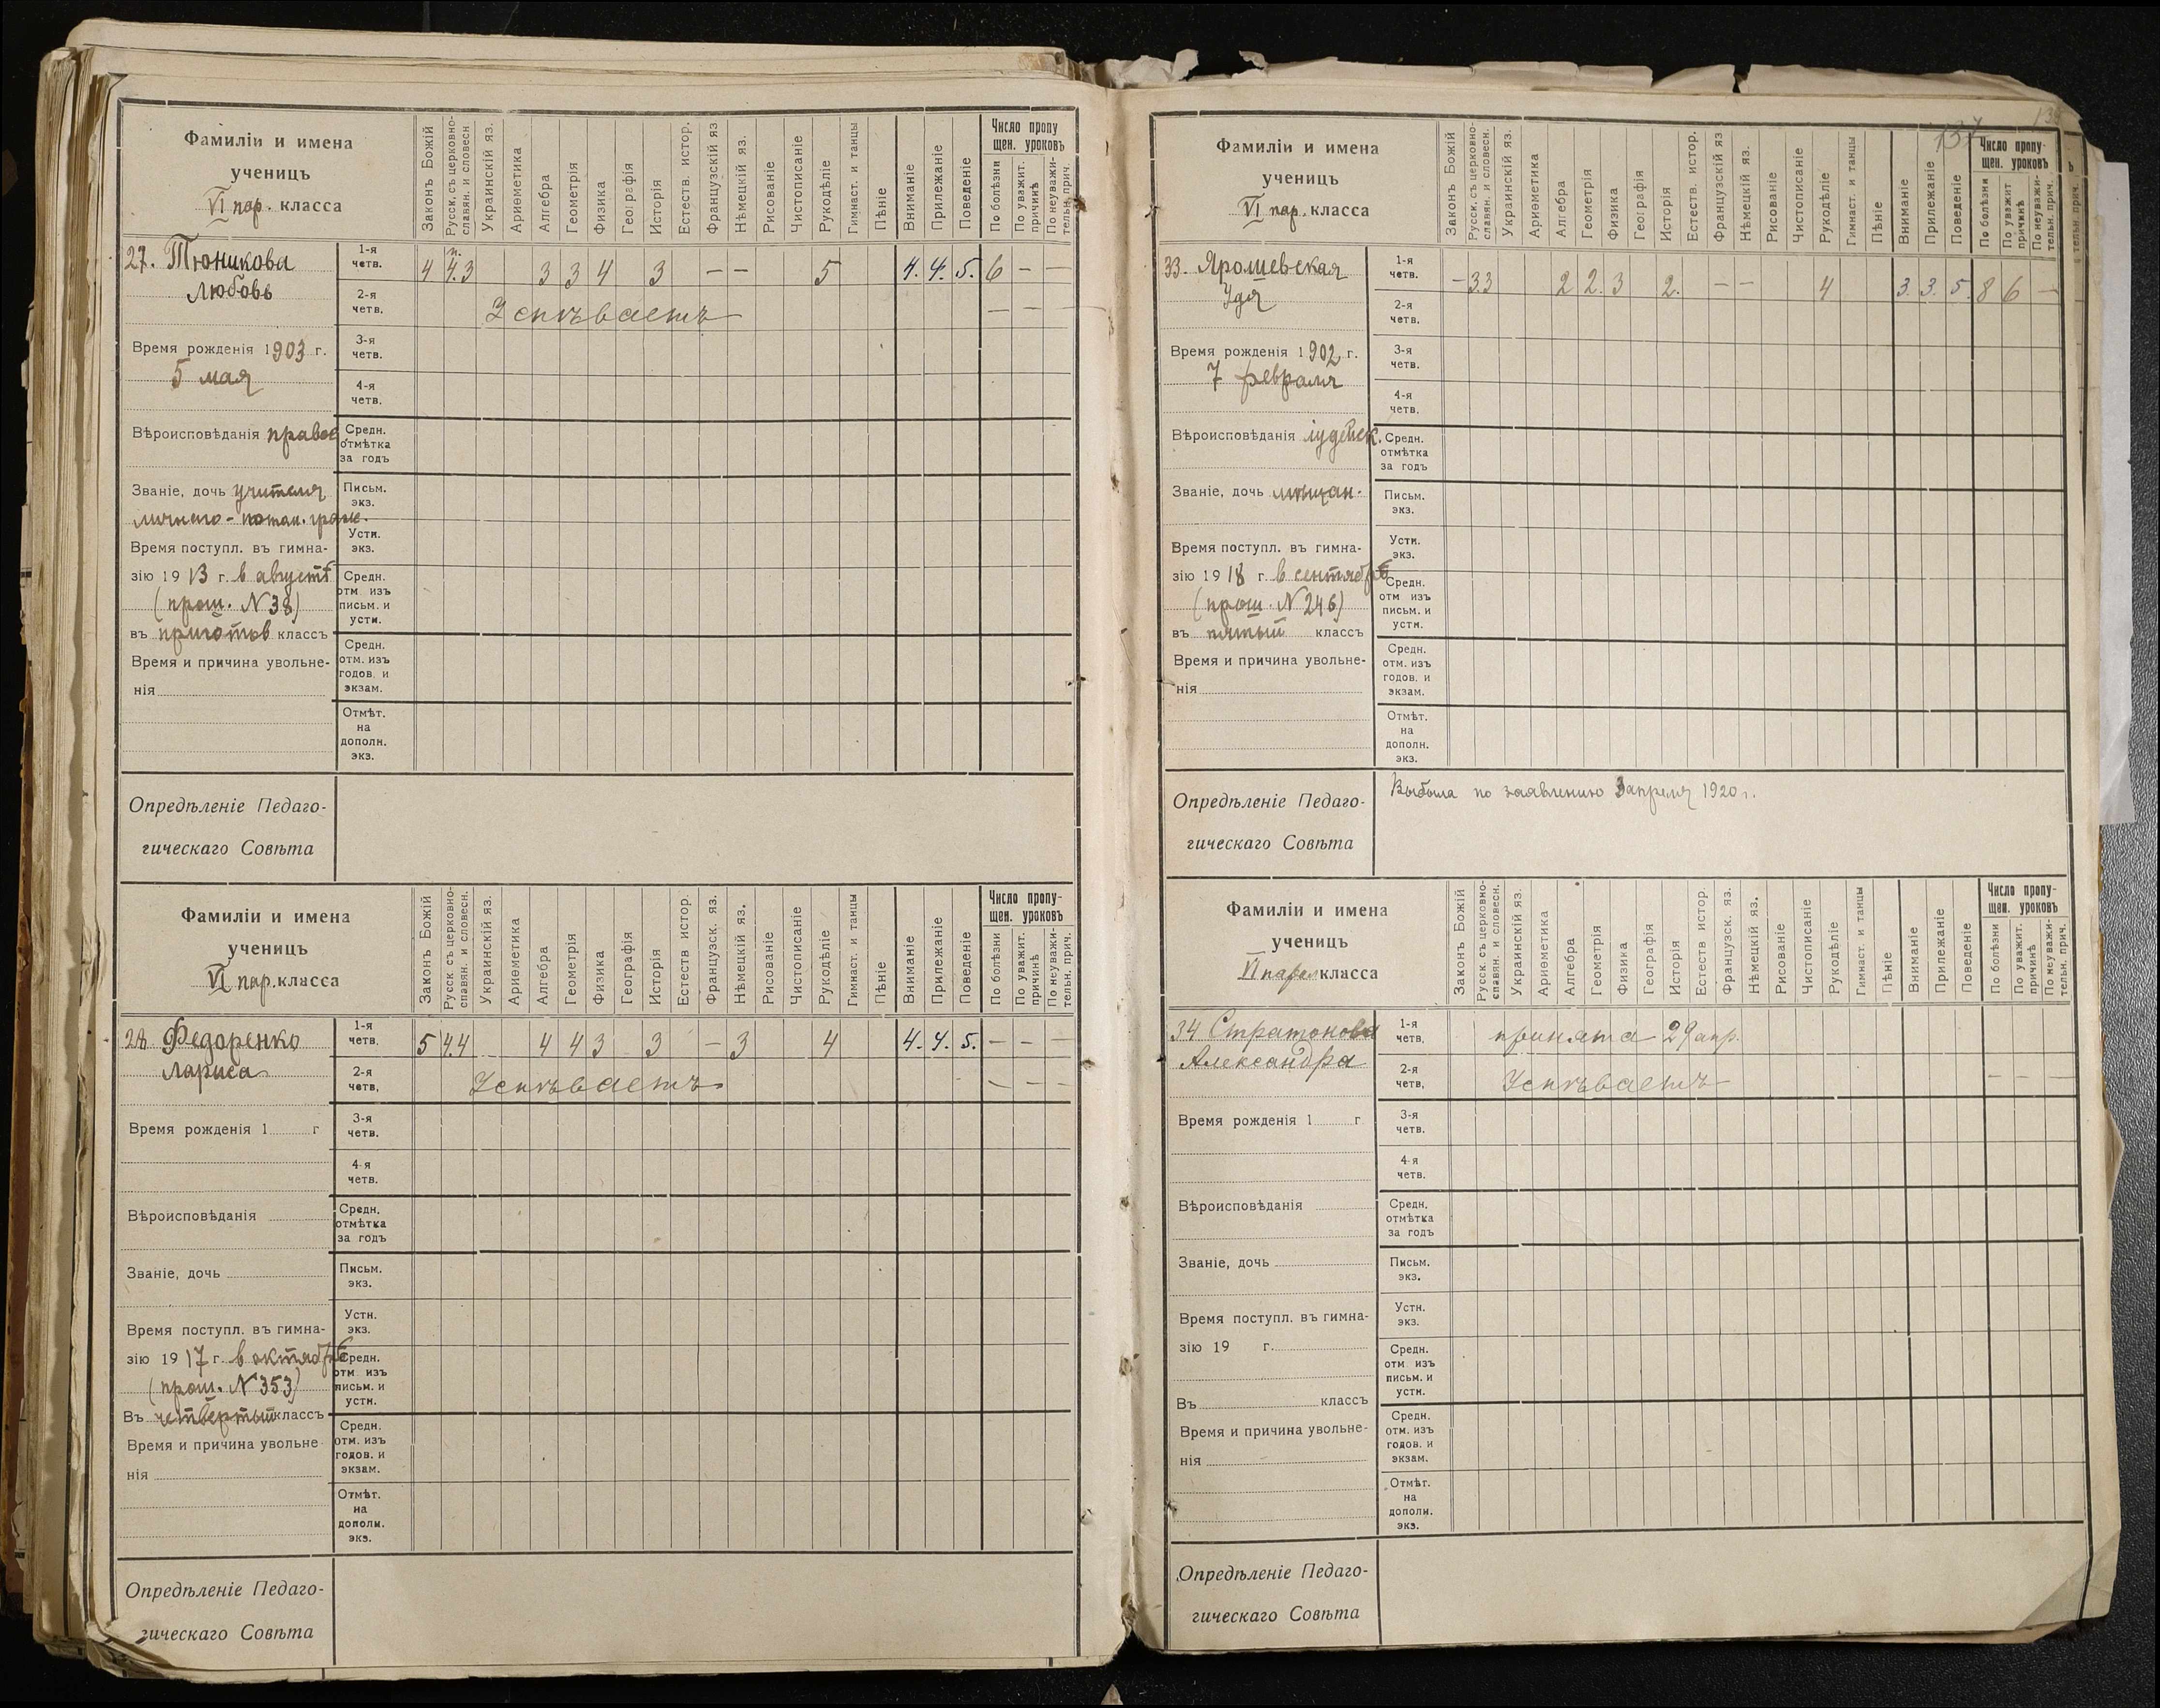 Фамиліи и имена
ученицъ
VI пар. класса
Законъ Божій
Русск. съ церковно-
славян. и словесн
Украинскій яз.
Ариѳметика
Алгебра
Геометрія
Физика
Географія
Исторія
Естеств. истор.
Французскій яз
Нѣмецкій яз.
Рисованіе
Чистописаніе
Рукодѣліе
Гимнаст. и танцы
Пѣніе
Вниманіе
Прилежаніе
Поведеніе
Число пропу
щен. уроковъ
По болѣзни
По уважит.
причинѣ
По неуважи-
тельн. прич.
27. Тюникова
Любовь
1-я
четв.
4 4.3 3 3 4 3 — — 5 4. 4. 5. 6 — —
2-я
четв.
Успѣваетъ — — —
Время рожденія 1903 г.
5 мая
3-я
четв.
4-я
четв.
Вѣроисповѣданія правос
Средн.
отмѣтка
за годъ
Званіе, дочь учителя
личнаго - потом. граж.
Письм.
экз.
Устн.
экз.
Время поступл. въ гимна-
зію 1913 г. в августѣ
(прош. N 38)
въ приготов классъ
Средн.
отм. изъ
письм. и
устн.
Время и причина увольне-
нія
Средн.
отм. изъ
годов. и
экзам.
Отмѣт.
на
дополн.
экз.
Опредѣленіе Педаго-
гическаго Совѣта
Фамиліи и имена
ученицъ
VI пар. класса
Законъ Божій
Русск. съ церковно-
славян. и словесн.
Украинскій яз.
Ариѳметика
Алгебра
Геометрія
Физика
Географія
Исторія
Естеств истор.
Французск. яз.
Нѣмецкій яз.
Рисованіе
Чистописаніе
Рукодѣліе
Гимнаст. и танцы
Пѣніе
Вниманіе
Прилежаніе
Поведеніе
Число пропу-
щен. уроковъ
По болѣзни
По уважит.
причинѣ
По неуважи-
тельн. прич.
28 Федоренко
Лариса
1-я
четв.
5 4.4 4 4 3 3 — 3 4 4. 4. 5. — — —
2-я
четв.
Успѣваетъ — — —
Время рожденія 1 г
3-я
четв.
4-я
четв.
Вѣроисповѣданія
Средн.
отмѣтка
за годъ
Званіе, дочь
Письм.
экз.
Устн.
экз.
Время поступл. въ гимна-
зію 1917 г. в октябрѣ
(прош. N 353)
Въ четвертый классъ
Средн.
отм. изъ
письм. и
устн.
Время и причина увольне
нія
Средн.
отм. изъ
годов. и
экзам.
Отмѣт.
на
дополн.
экз.
Опредѣленіе Педаго-
гическаго Совѣта
137
Фамиліи и имена
ученицъ
VI пар. класса
Законъ Божій
Русск. съ церковно-
славян. и словесн.
Украинскій яз.
Ариѳметика
Алгебра
Геометрія
Физика
Географія
Исторія
Естеств. истор.
Французскій яз
Нѣмецкій яз.
Рисованіе
Чистописаніе
Рукодѣліе
Гимнаст. и танцы
Пѣніе
Вниманіе
Прилежаніе
Поведеніе
Число пропу-
щен. уроковъ
По болѣзни
По уважит
причинѣ
По неуважи-
тельн. прич.
33. Ярошевская
Удя
1-я
четв.
— 3.3 2 2. 3 2. — — 4 3. 3. 5. 8 6 —
2-я
четв.
Время рожденія 1902 г.
7 февраля
3-я
четв.
4-я
четв.
Вѣроисповѣданія іудейск.
Средн.
отмѣтка
за годъ
Званіе, дочь мѣщан.
Письм.
экз.
Устн.
экз.
Время поступл. въ гимна-
зію 1918 г в сентябрѣ
(прош. N 246)
въ пятый классъ
Средн.
отм изъ
письм. и
устн.
Время и причина увольне-
нія
Средн.
отм. изъ
годов. и
экзам.
Отмѣт.
на
дополн.
экз.
Опредѣленіе Педаго-
гическаго Совѣта
Выбыла по заявлению 3 апреля 1920 г.
Фамиліи и имена
ученицъ
VI парал класса
Законъ Божій
Русск. съ церковно-
славян. и словесн.
Украинскій яз.
Ариѳметика
Алгебра
Геометрія
Физика
Географія
Исторія
Естеств истор
Французск. яз.
Нѣмецкій яз.
Рисованіе
Чистописаніе
Рукодѣліе
Гимнаст. и танцы
Пѣніе
Вниманіе
Прилежаніе
Поведеніе
Число пропу-
щен. уроковъ
По болѣзни
По уважит.
причинѣ
По неуважи-
тельн. прич.
34 Стратонова
Александра
1-я
четв.
принята 29 апр.
2-я
четв.
Успѣваетъ — — —
Время рожденія 1 г
3-я
четв.
4-я
четв.
Вѣроисповѣданія
Средн.
отмѣтка
за годъ
Званіе, дочь
Письм.
экз.
Устн.
экз.
Время поступл. въ гимна-
зію 19 г.
Въ классъ
Средн.
отм изъ
письм. и
устн.
Время и причина увольне-
нія
Средн.
отм. изъ
годов. и
экзам.
Отмѣт.
на
дополн.
экз.
Опредѣленіе Педаго-
гическаго Совѣта